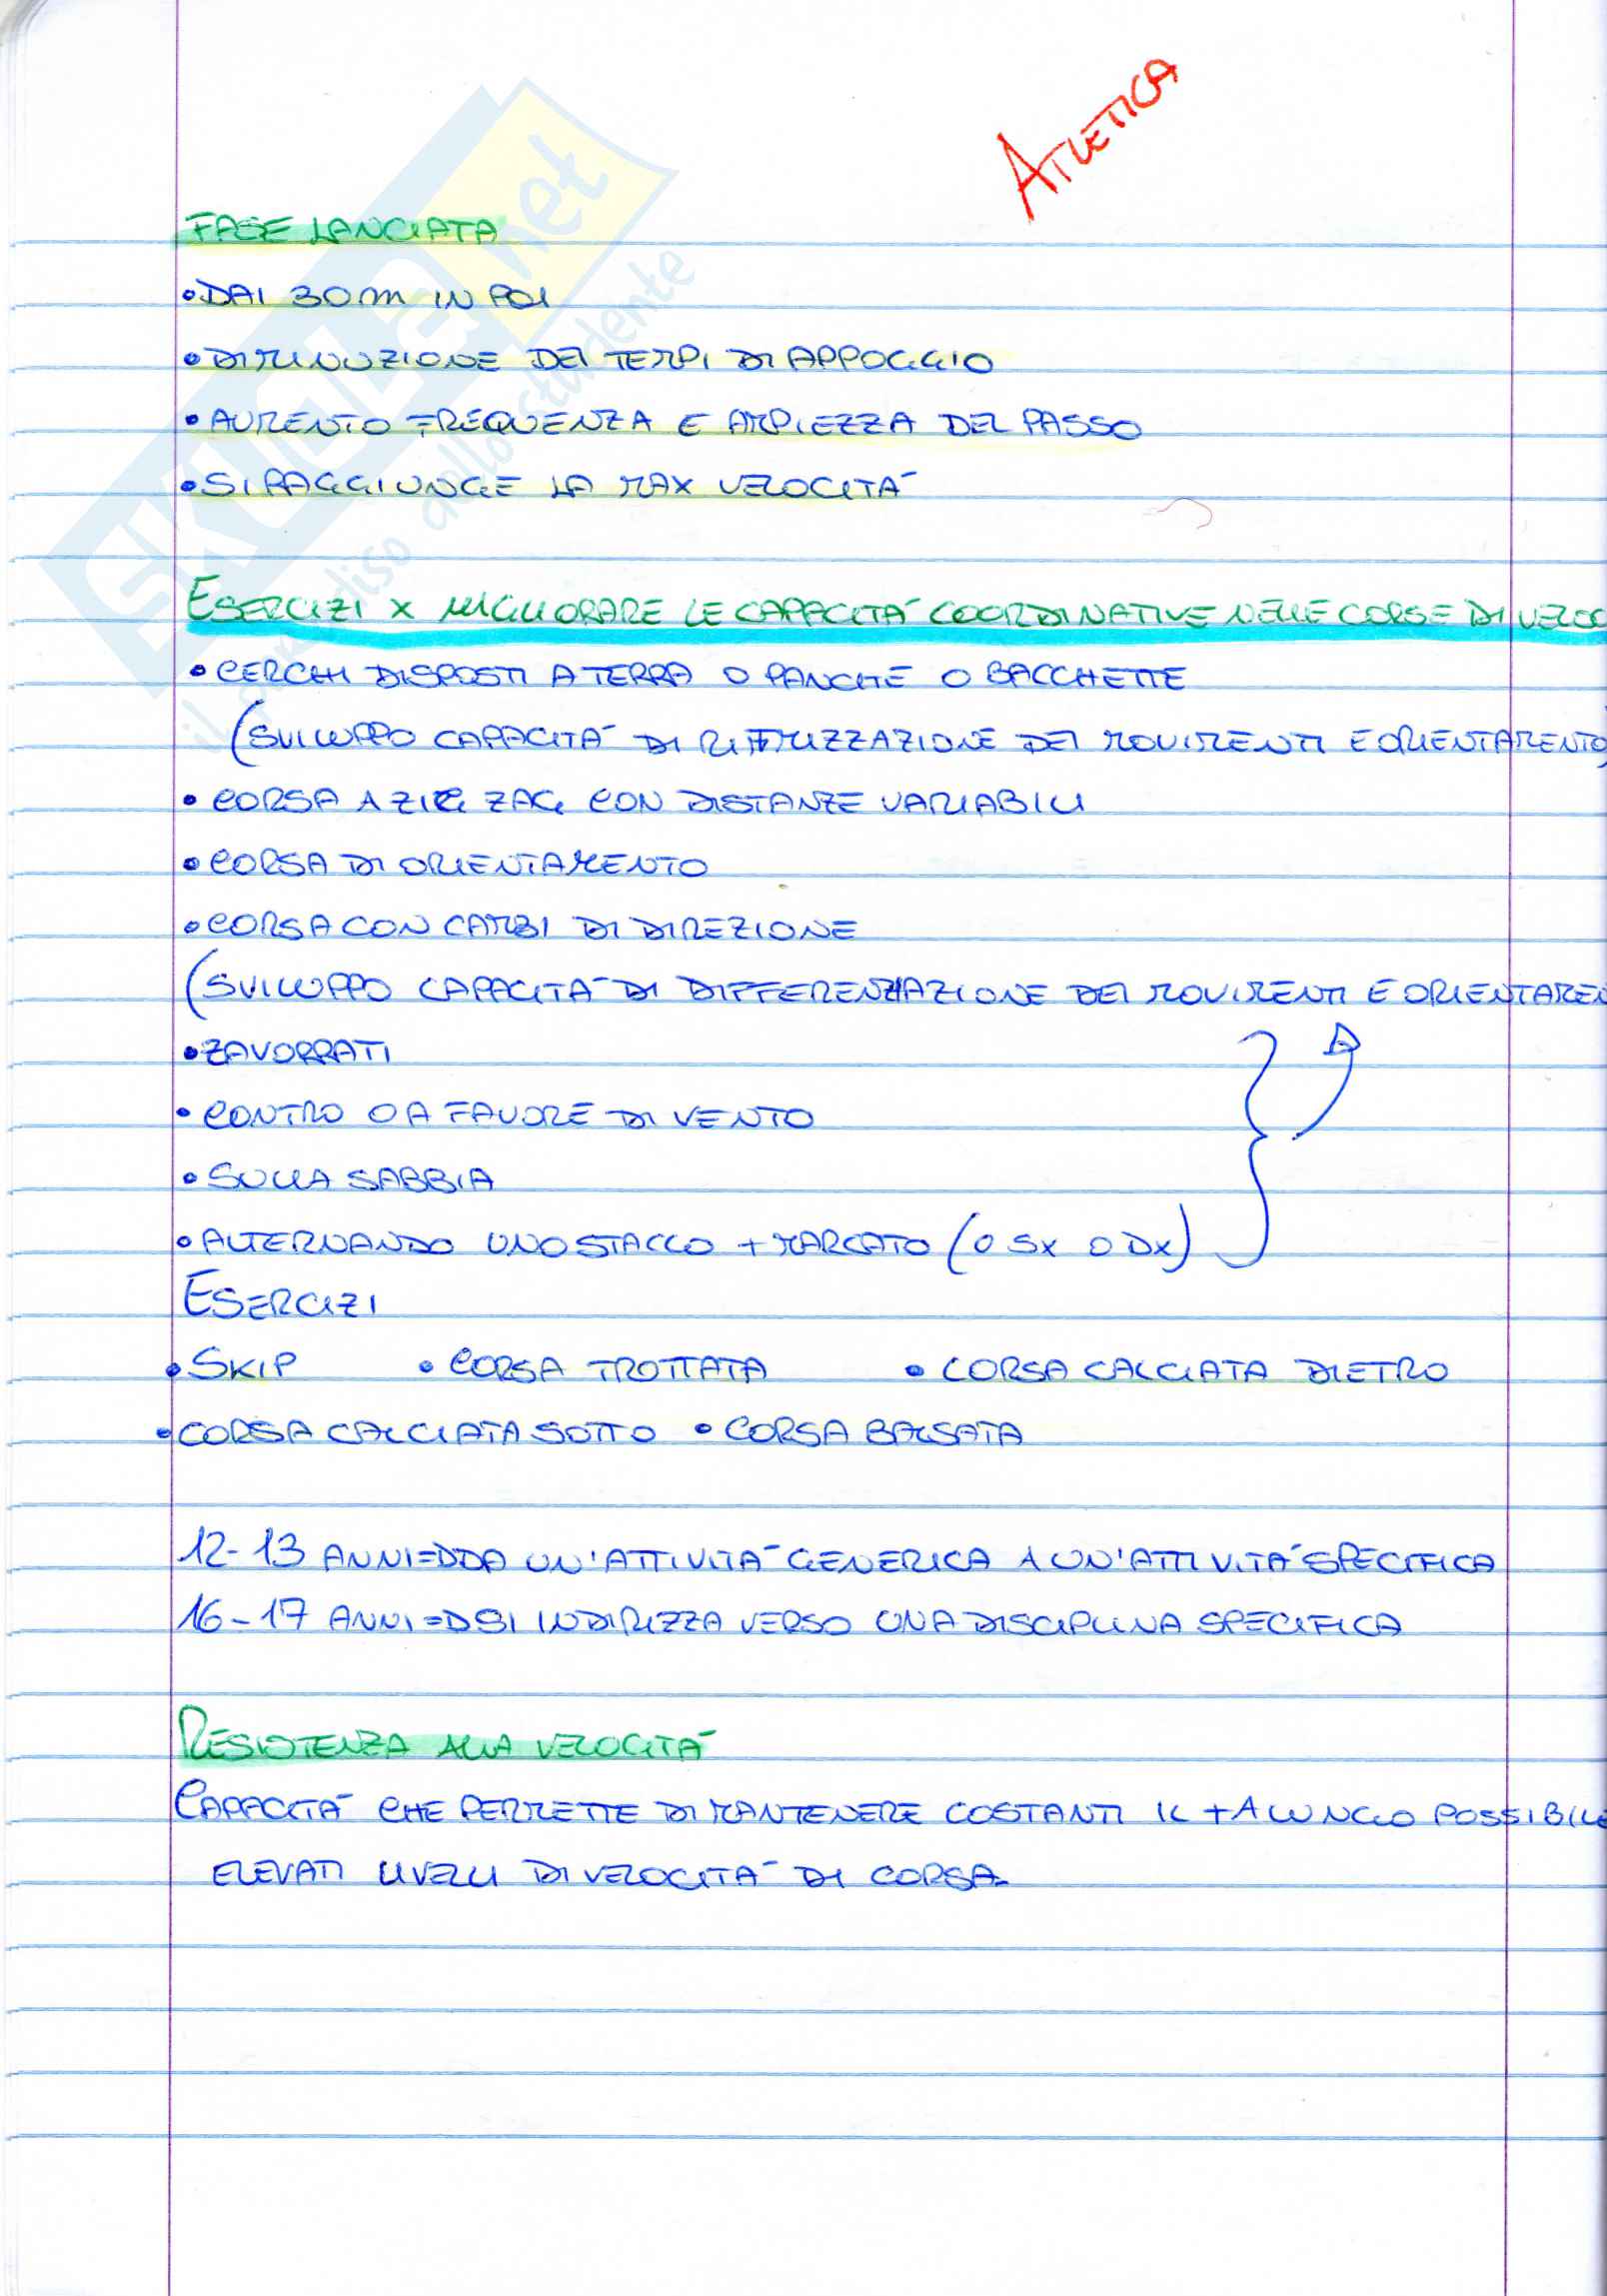 ATLETICA
FASE LANCIATA
• DAI 30 m IN POI
• DIMINUZIONE DEI TEMPI DI APPOGGIO
• AUMENTO FREQUENZA E AMPIEZZA DEL PASSO
• SI RAGGIUNGE LA MAX VELOCITÀ
ESERCIZI X MIGLIORARE LE CAPACITÀ COORDINATIVE NELLE CORSE DI VELOC
• CERCHI DISPOSTI A TERRA O PANCHE O BACCHETTE
(SVILUPPO CAPACITÀ DI RITMIZZAZIONE DEI MOVIMENTI E ORIENTAMENTO)
• CORSA A ZIG ZAG CON DISTANZE VARIABILI
• CORSA DI ORIENTAMENTO
• CORSA CON CAMBI DI DIREZIONE
(SVILUPPO CAPACITÀ DI DIFFERENZIAZIONE DEI MOVIMENTI E ORIENTAMEN
• ZAVORRATI
• CONTRO O A FAVORE DI VENTO
• SULLA SABBIA
• ALTERNANDO UNO STACCO + MARCATO (O SX O DX)
ESERCIZI
• SKIP • CORSA TROTTATA • CORSA CALCIATA DIETRO
• CORSA CALCIATA SOTTO • CORSA BALSATA
12-13 ANNI => DA UN'ATTIVITÀ GENERICA A UN'ATTIVITÀ SPECIFICA
16-17 ANNI => SI INDIRIZZA VERSO UNA DISCIPLINA SPECIFICA
RESISTENZA ALLA VELOCITÀ
CAPACITÀ CHE PERMETTE DI MANTENERE COSTANTI IL + A LUNGO POSSIBILE
ELEVATI LIVELLI DI VELOCITÀ DI CORSA.
SKUOLA.net
il paradiso dello studente